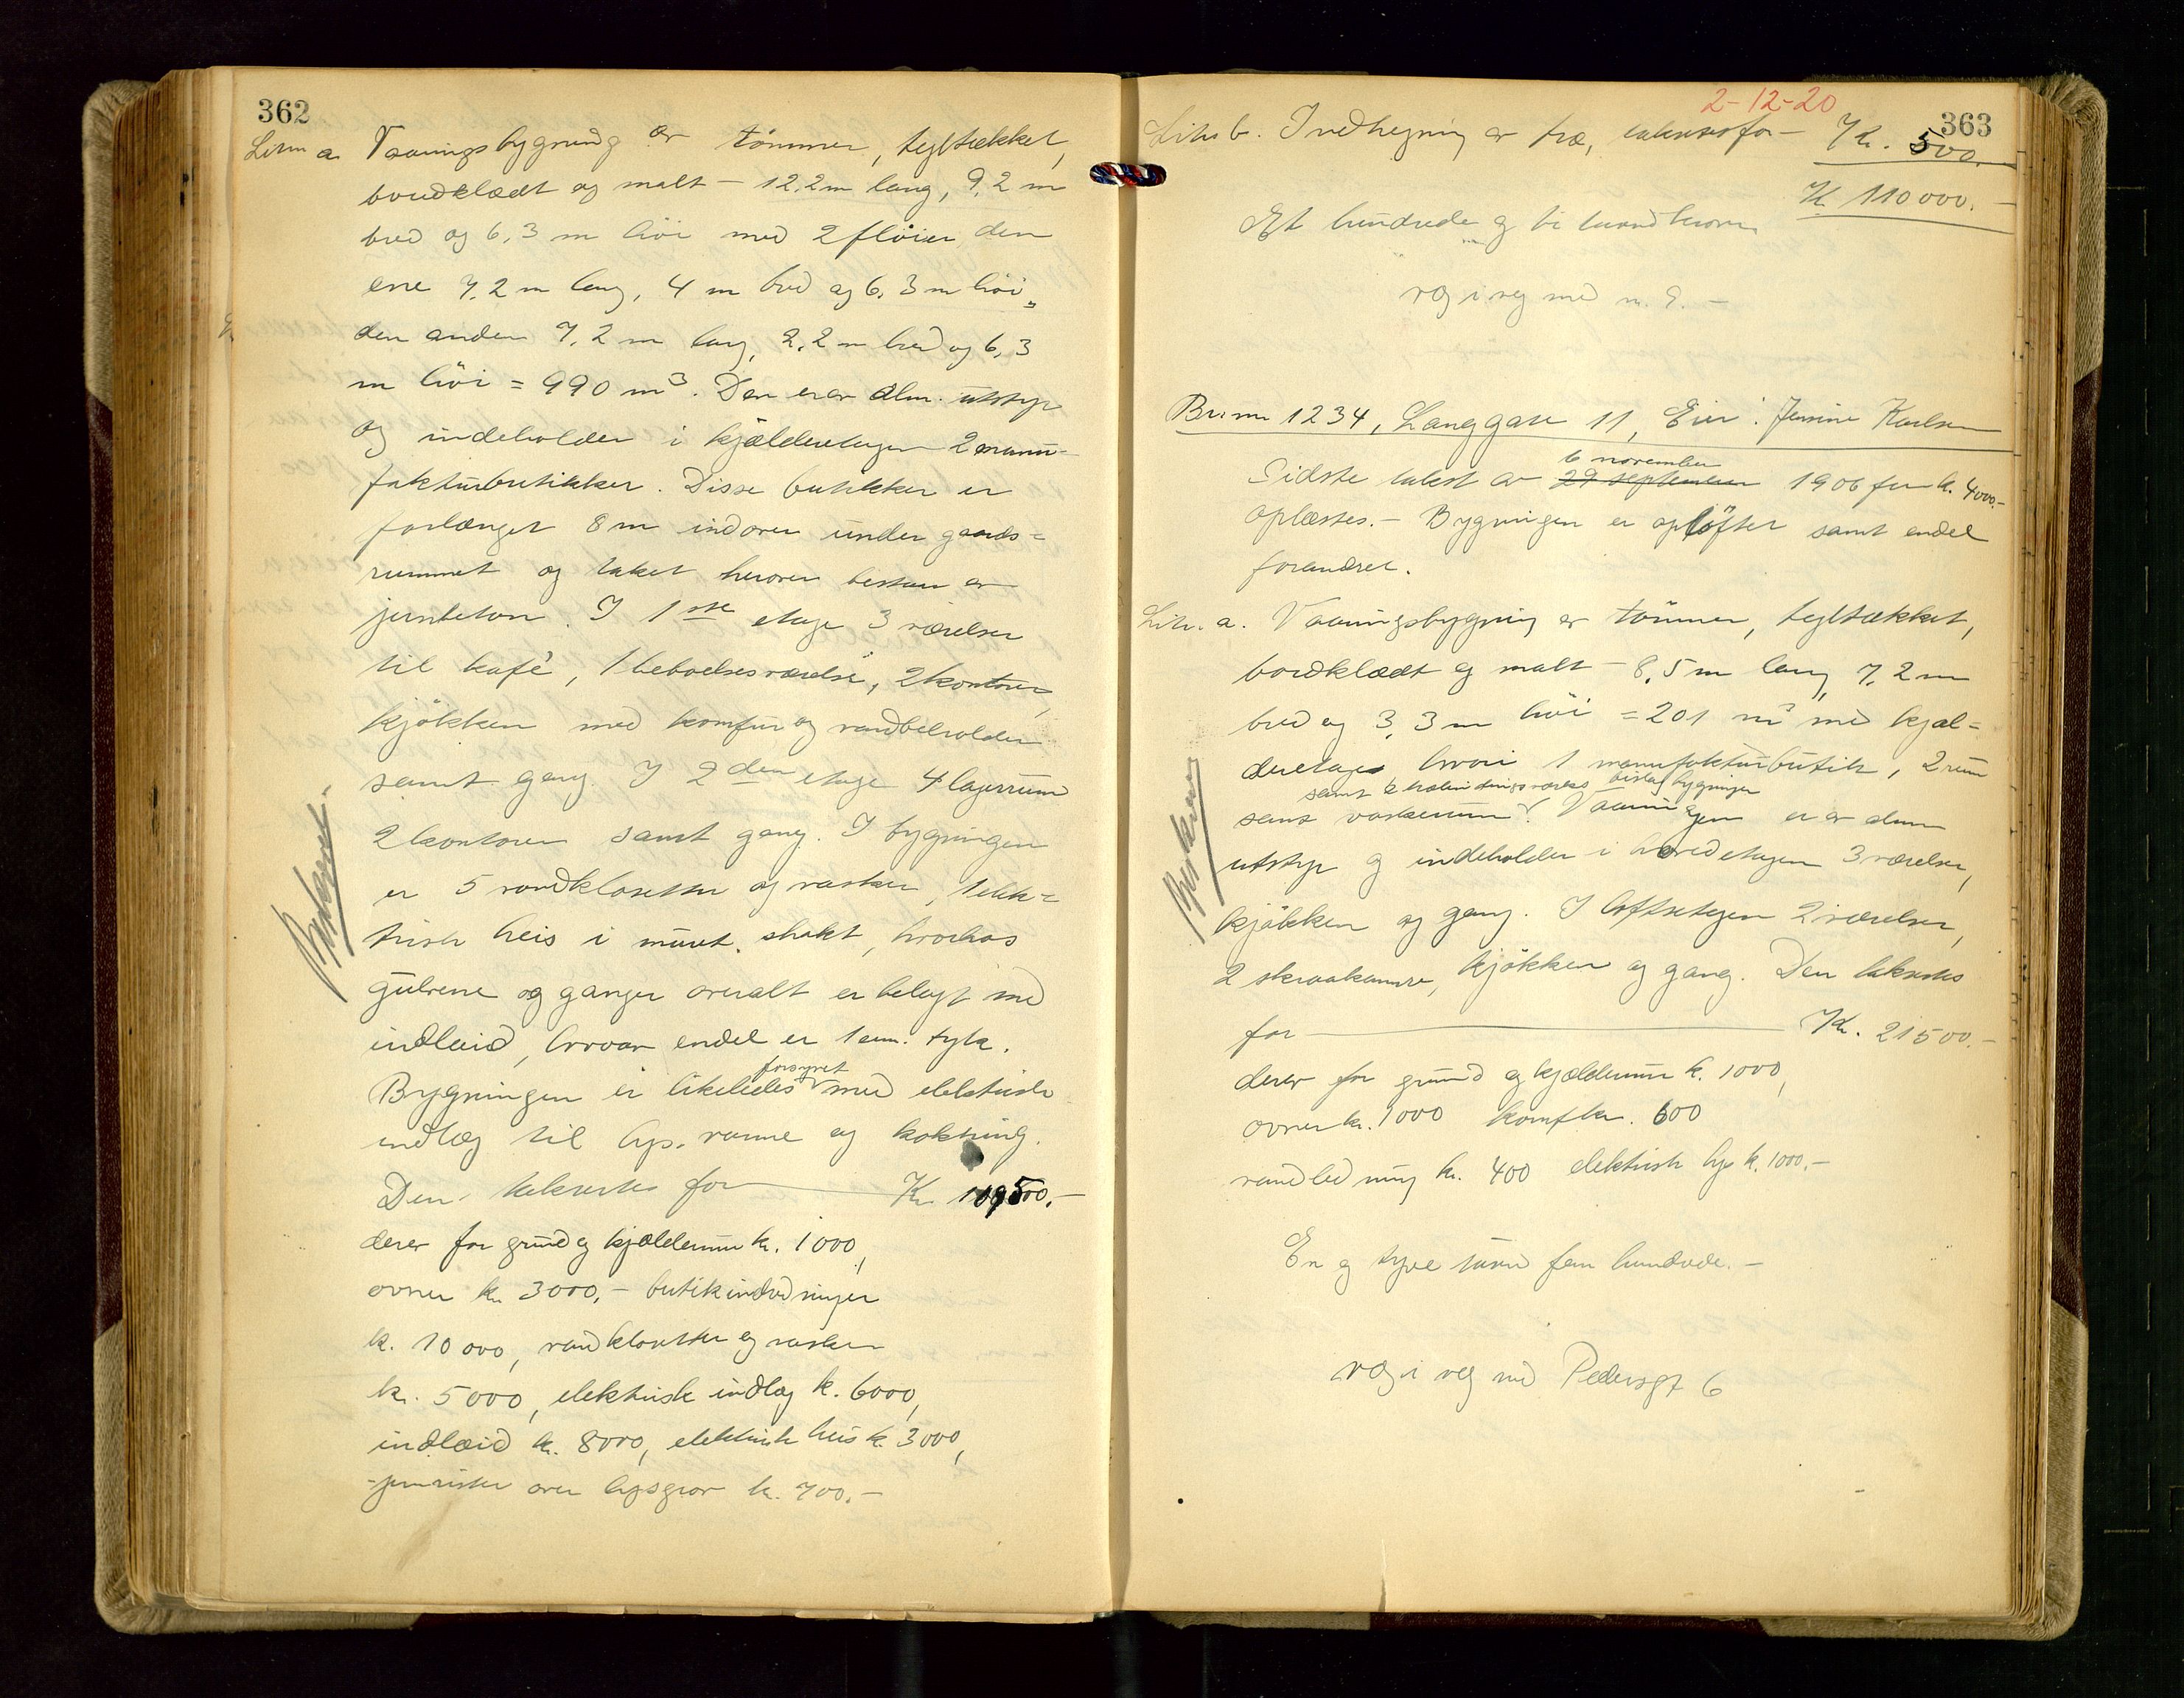 362
Litra a. Vaaningsbygning av tömmer, tegltækket,
bordklædt og malt - 12,2 m lang, 9,2 m
bred og 6,3 m höi med 2 flöier, den
ene 7,2 m lang, 4 m bred og 6,3 m höi,
den anden 7,2 m lang, 2,2 m bred og 6,3
m höi = 990 m³. Den er av alm. utstyr
og indeholder i kjælderetagen 2 manu-
fakturbutikker. Disse butikker er
forlænget 8 m indover under gaards=
rummet og taket herover bestaar av
jernbeton. I 1ste etage 3 værelser
til kafé, 1 beboelsesværelse, 2 kontorer,
kjökken med komfur og vandbeholder
samt gang. I 2den etage 4 lagerrum
2 kontorer samt gang. I bygningen
er 5 vandklosetter og vasker, 1 elek=
trisk heis i muret shakt, hvorhos
gulvene og ganger overalt er belagt med
indlaid, hvorav endel er 1 cm. tyk.
forsynet
Bygningen er likeledes med elektrisk
indlæg til lys, varme og kokning.
Den taksertes for Kr. 109500.-
derav for grund og kjælderrum kr. 1000,
ovner kr. 3000,- butikindredninger
kr. 10000, vandklosetter og vasker
kr. 5000, elektrisk indlæg kr. 6000,
indlaid kr. 8000, elektrisk heis kr. 3000,
jernrister over lysgrav kr. 700.-
2-12-20
363
Litra b. Indhegning av træ, taksertes for - Kr. 500.
Kr. 110000.-
Et hundrede og ti tusend kroner
væg i væg med nr. 9.-
Br. nr 1234, Langgate 11, Eier: Jensine Karlsen
6 november
Sidste takst av 29 september 1906 for kr. 4000.-
oplæstes.- Bygningen er opløftet samt endel
forandret.
Litr. a. Vaaningsbygning av tömmer, tegltækket,
bordklædt og malt - 8,5 m lang, 7,2 m
bred og 3,3 m höi = 201 m³ med kjæl=
deretage hvori 1 manufakturbutik, 2 rum
samt 2
bygningen
samt vaskerum. Vaaningen er av alm
utstyr og indeholder i hovedetagen 3 værelser,
kjökken og gang. I loftsetagen 2 værelser,
2 skraakamre, kjökken og gang. Den taksertes
for Kr. 21500.-
derav for grund og kjælderrum kr. 1000,
ovner kr. 1000 komf kr. 600
vandledning kr. 400 elektrisk lys kr. 1000.-
En og tyve tusen fem hundrede.-
væg i væg med Pedersgt 6